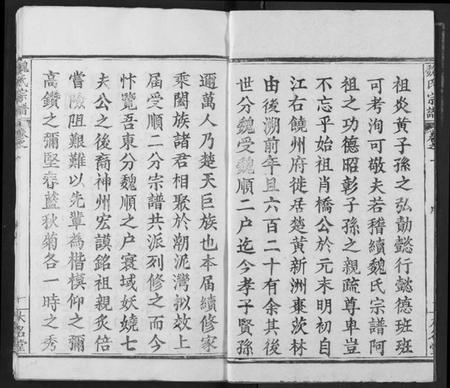 祖炎黃子孫之弘勳懿行懿德班班
可考洵可敬夫若稽續魏氏宗譜阿
祖之功德昭彰子孫之親疏尊卑豈
不忘乎始祖肖橋公於元末明初自
江右饒州府徙居楚黃新洲棗茨林
由後溯前年且六百二十有余其後
世分魏受魏順二户迄今孝子賢孫
邇萬人乃楚天巨族也本届續修家
乘闔族諸君相聚於潮泥灣拟效上
届受順二分宗譜共派列修之而今
忭覽吾東分魏順之户寰域妖嬈七
夫公之後裔神州宏謨銘祖親炙倍
嘗險阻艱難以先輩為楷模仰之彌
高鑽之彌堅春蘭秋菊各一時之秀
魏氏宗譜